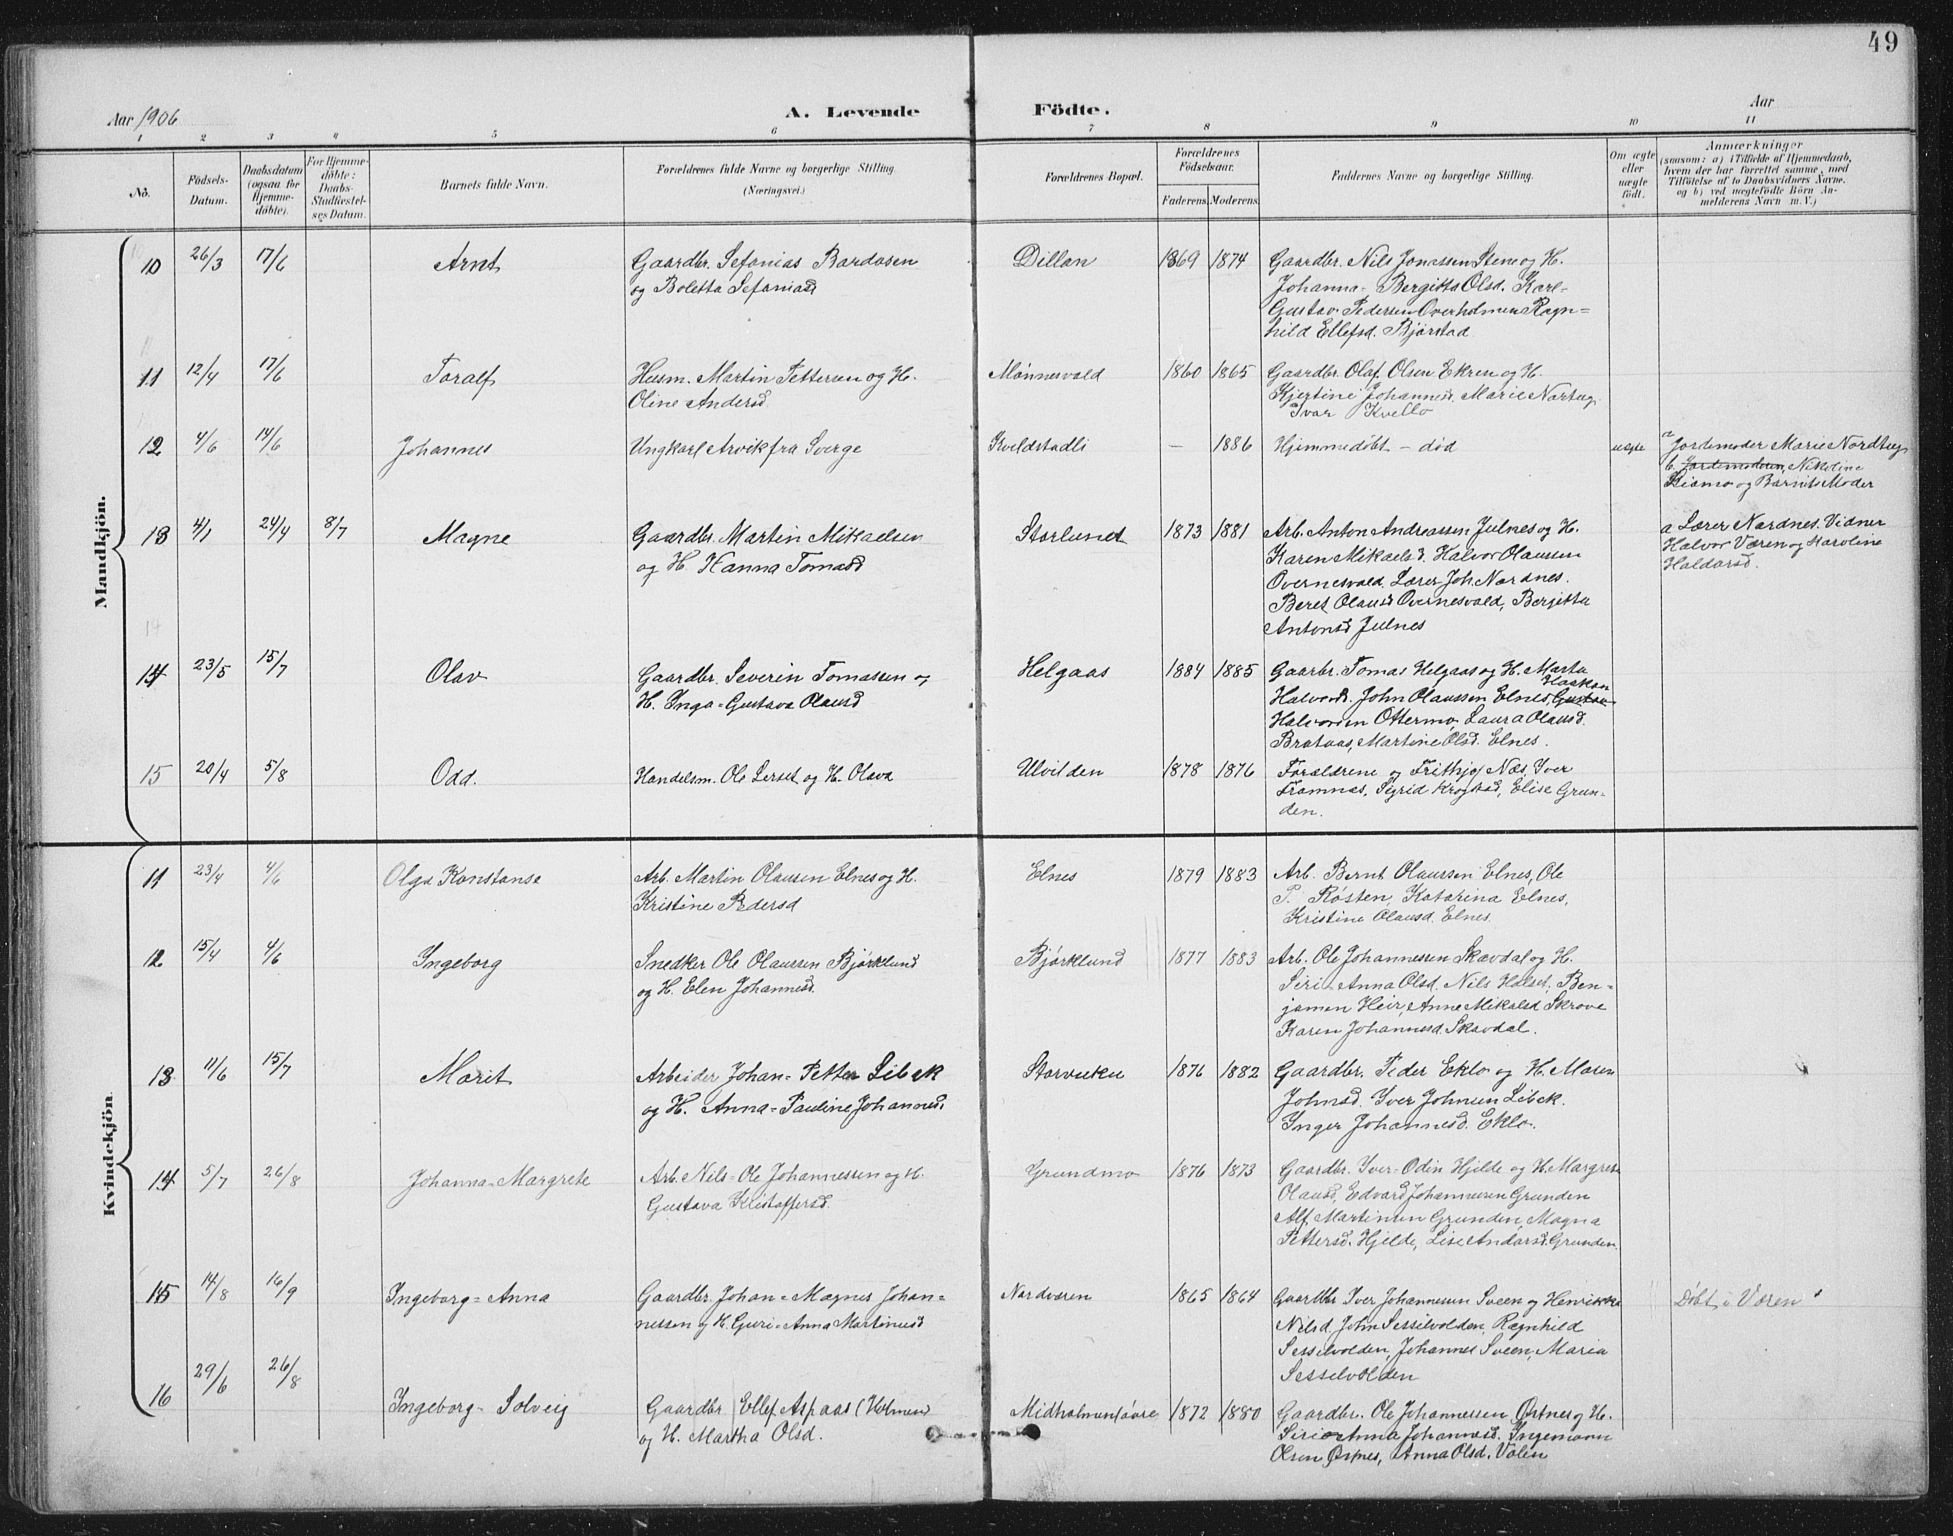 49
Aar 1906
A. Levende Födte.
Aar
1 2 3 4 5 6 7 8 9 10 11
No.
Födsels-Datum.
Daabsdatum (ogsaa for Hjemme-döbte).
For Hjemme-döbte: Daabs-Stadfæstel-ses Datum.
Barnets fulde Navn.
Forældrenes fulde Navne og borgerlige Stilling (Næringsvei.)
Forældrenes Bopæl.
Forældrenes Födselsaar.
Faderens. Moderens.
Faddernes Navne og borgerlige Stilling.
Om ægte eller uægte födt.
Anmærkninger
(saasom: a) i Tilfælde af Hjemmedaab,
hvem der har forrettet samme, med
Tilföielse af to Daabsvidners Navne.
og b) ved uægtefödte Börn An-
melderens Navn m. V.)
Mandkjön.
10 26/3 17/6 Arnt
Gaardbr. Sefanias Bardosen
og Boletta Sefaniasd
Dillan 1869 1874
Gaardbr. Nils Jonassen Stene og H.
Johanna-Bergitta Olsd. Karl-
Gustav Pedersen Overholmen Ragn=
hild Ellefsd. Bjørstad
11 12/4 17/6 Toralf
Husm. Martin Pettersen og H.
Oline Andersd.
Mønnesvald 1860 1865
Gaardbr. Olaf Olsen Ekren og H.
Kjertine Johannesd. Marie Nortug
Ivar Kvello
12 4/6 14/6 Johannes
Ungkarl Arvik fra Sverge
Kveldstadli – 1886
Hjemmedøbt – død
uægte
a Jordemoder Marie Nordtug
b. Jordemoderen, Nikoline
Stamo og Barnets Moder
13 4/1 24/4 8/7 Magne
Gaardbr. Martin Mikaelsen
og H. Hanna Tomasd
Storlunet 1873 1881
Arb. Anton Andreassen Julnes og H.
Karen Mikaelsd. Halvor Olaussen
Overnesvald. Lærer Joh. Nordnes.
Beret Olausd Overnesvald, Bergitta
Antonsd Julnes
a Lærer Nordnes. Vidner
Halvor Væren og Karoline
Haldorsd.
14 23/5 15/7 Olav
Gaardbr. Severin Tomassen og
H. Inga-Gustava Olausd
Helgaas 1884 1885
Gaarbr. Tomas Helgaas og H. Marta
Haakon
Halvorsd. John Olaussen Elnes, Gustav
Halvorsen Ottermo, Laura Olausd.
Brataas, Martine Olsd. Elnes.
15 20/4 5/8 Odd.
Handelsm. Ole Lerset og H. Olava
Ulvilden 1878 1876
Forældrene og Frithjof Næs. Iver
Framnes, Sigrid Krogstad, Elise Grun-
den.
Kvindekjön.
11 23/4 4/6 Olga Konstanse
Arb. Martin Olaussen Elnes og H.
Kristine Pedersd
Elnes 1879 1883
Arb. Bernt Olaussen Elnes, Ole
P. Røsten, Katarina Elnes,
Kristine Olausd. Elnes.
12 15/4 4/6 Ingeborg
Snedker Ole Olaussen Bjørklund
og H. Elen Johannesd.
Bjørklund 1877 1883
Arb. Ole Johannessen Skavdal og H.
Siri-Anna Olsd. Nils Halset, Ben=
jamen Heir, Anne Mikalsd Skrove
Karen Johannesd. Skavdal.
13 11/6 15/7 Marit
Arbeider Johan-Petter Libek
og H. Anna-Pauline Johannesd.
Storvuku 1876 1882
Gaardbr. Peder Eklo og H. Maren
Johnsd. Iver Johnsen Libek.
Inger Johannesd. Eklo.
14 5/7 26/8 Johanna-Margrete
Arb. Nils-Ole Johannessen og H.
Gustava Kristoffersd.
Grundmo 1876 1873
Gaardbr. Iver-Odin Hjelde og H. Margrete
Olausd, Edvard Johannesen Grunden
Alf Martinsen Grunden, Magna
Pettersd. Hjelde, Lise Andersd. Grunden.
15 14/8 16/9 Ingeborg=Anna
Gaardbr. Johan-Magnus Johan=
nessen og H. Guri-Anna Martinusd
Nordværen 1865 1864
Gaardbr Iver Johannesen Sveen og Henrikka
Nilsd, John Sesselvolden, Ragnhild
Sesselvolden, Johannes Sveen, Maria
Sesselvolden
Døbt i Væren
16 29/6 26/8 Ingeborg-Solveig
Gaardbr Ellef Aspaas (Holmen)
og H. Martha Olsd.
Midholmen, øvre 1872 1880
Gaardbr. Ole Johannessen Østnes og H.
Siri-Anna Johannesd. Ingemann
Olsen Østnes, Anna Olsd. Valen